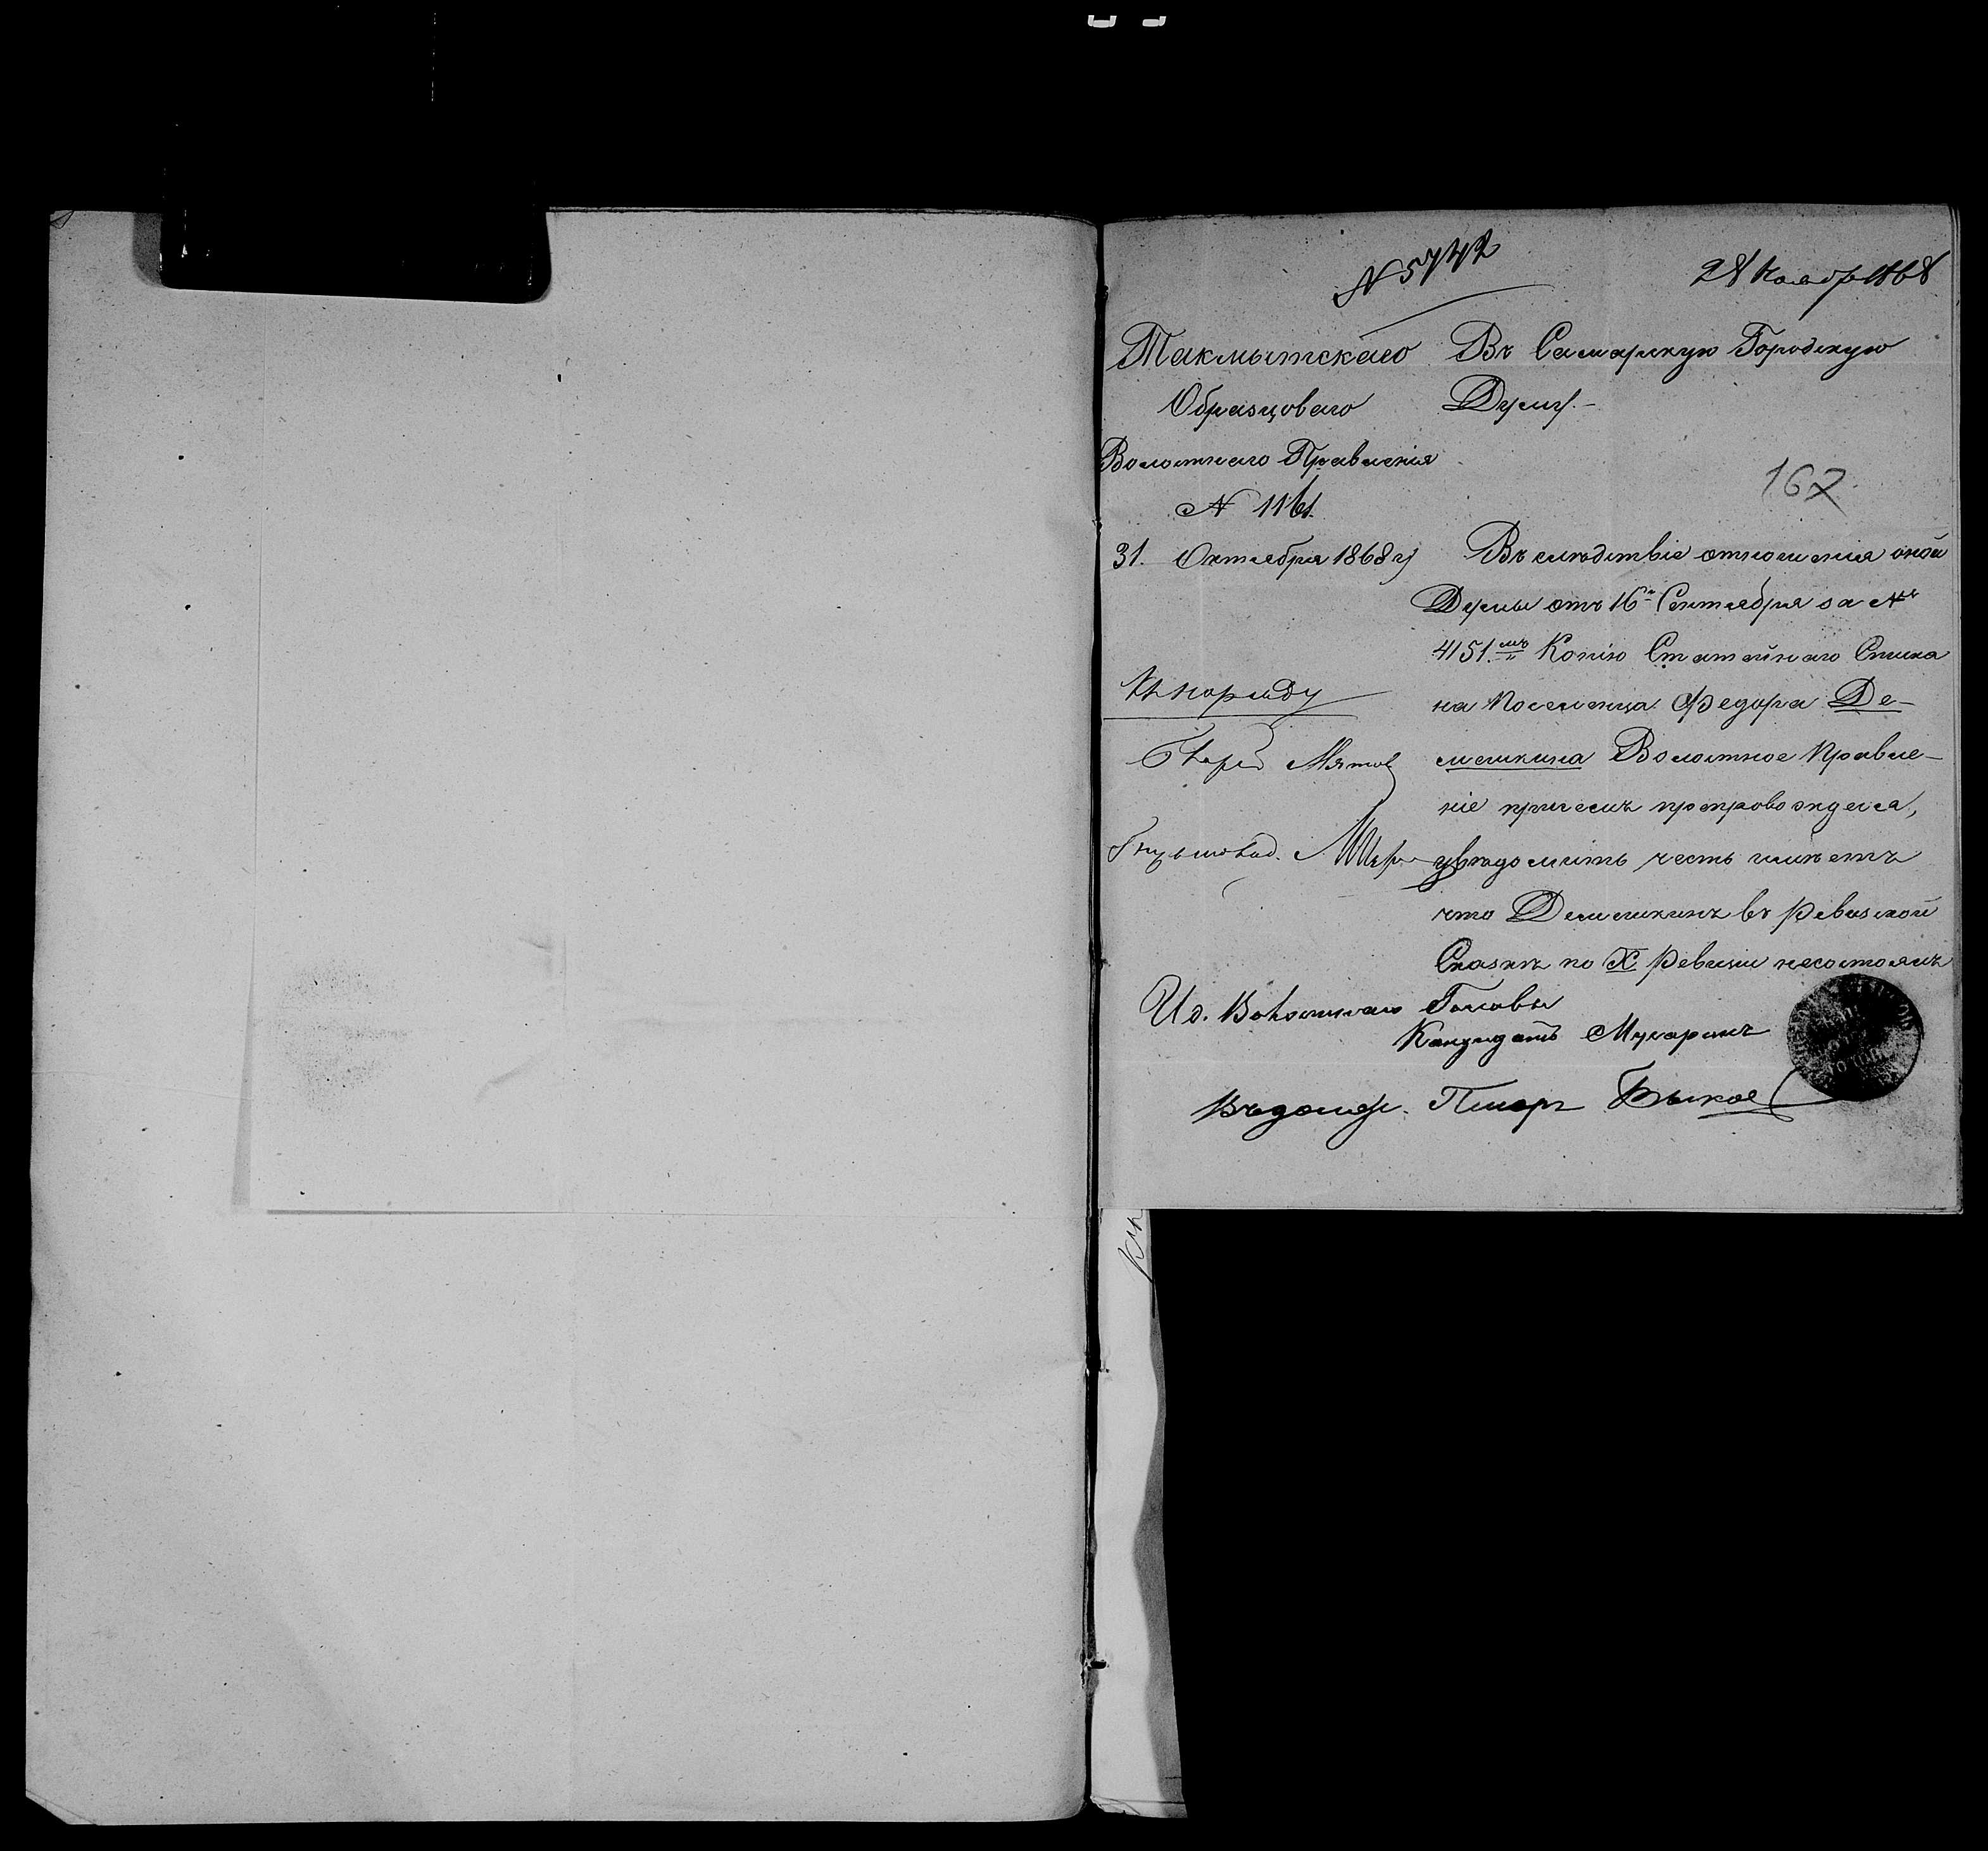 N 5742
28 Ноябр 1868
Такмытскаго
Образцоваго
Волостнаго Правленія
N 1161.
31. Октября 1868 г
Къ наряду
Въ Самарскую Городскую
Думу.-
167
Въ слѣдствіе отношенія оной
Думы отъ 16го Сентября за №
4151.мъ Копію Статейнаго Списка
на Поселенца Федора Де-
мешкина Волостное Правле-
ніе при семъ препровождая,
увѣдомить честь имѣетъ
что Демешкинъ въ Ревизской
Сказкѣ по X Ревизіи несостоялъ
И д. Волостнаго Головы
Кандидатъ
Писарь Быков